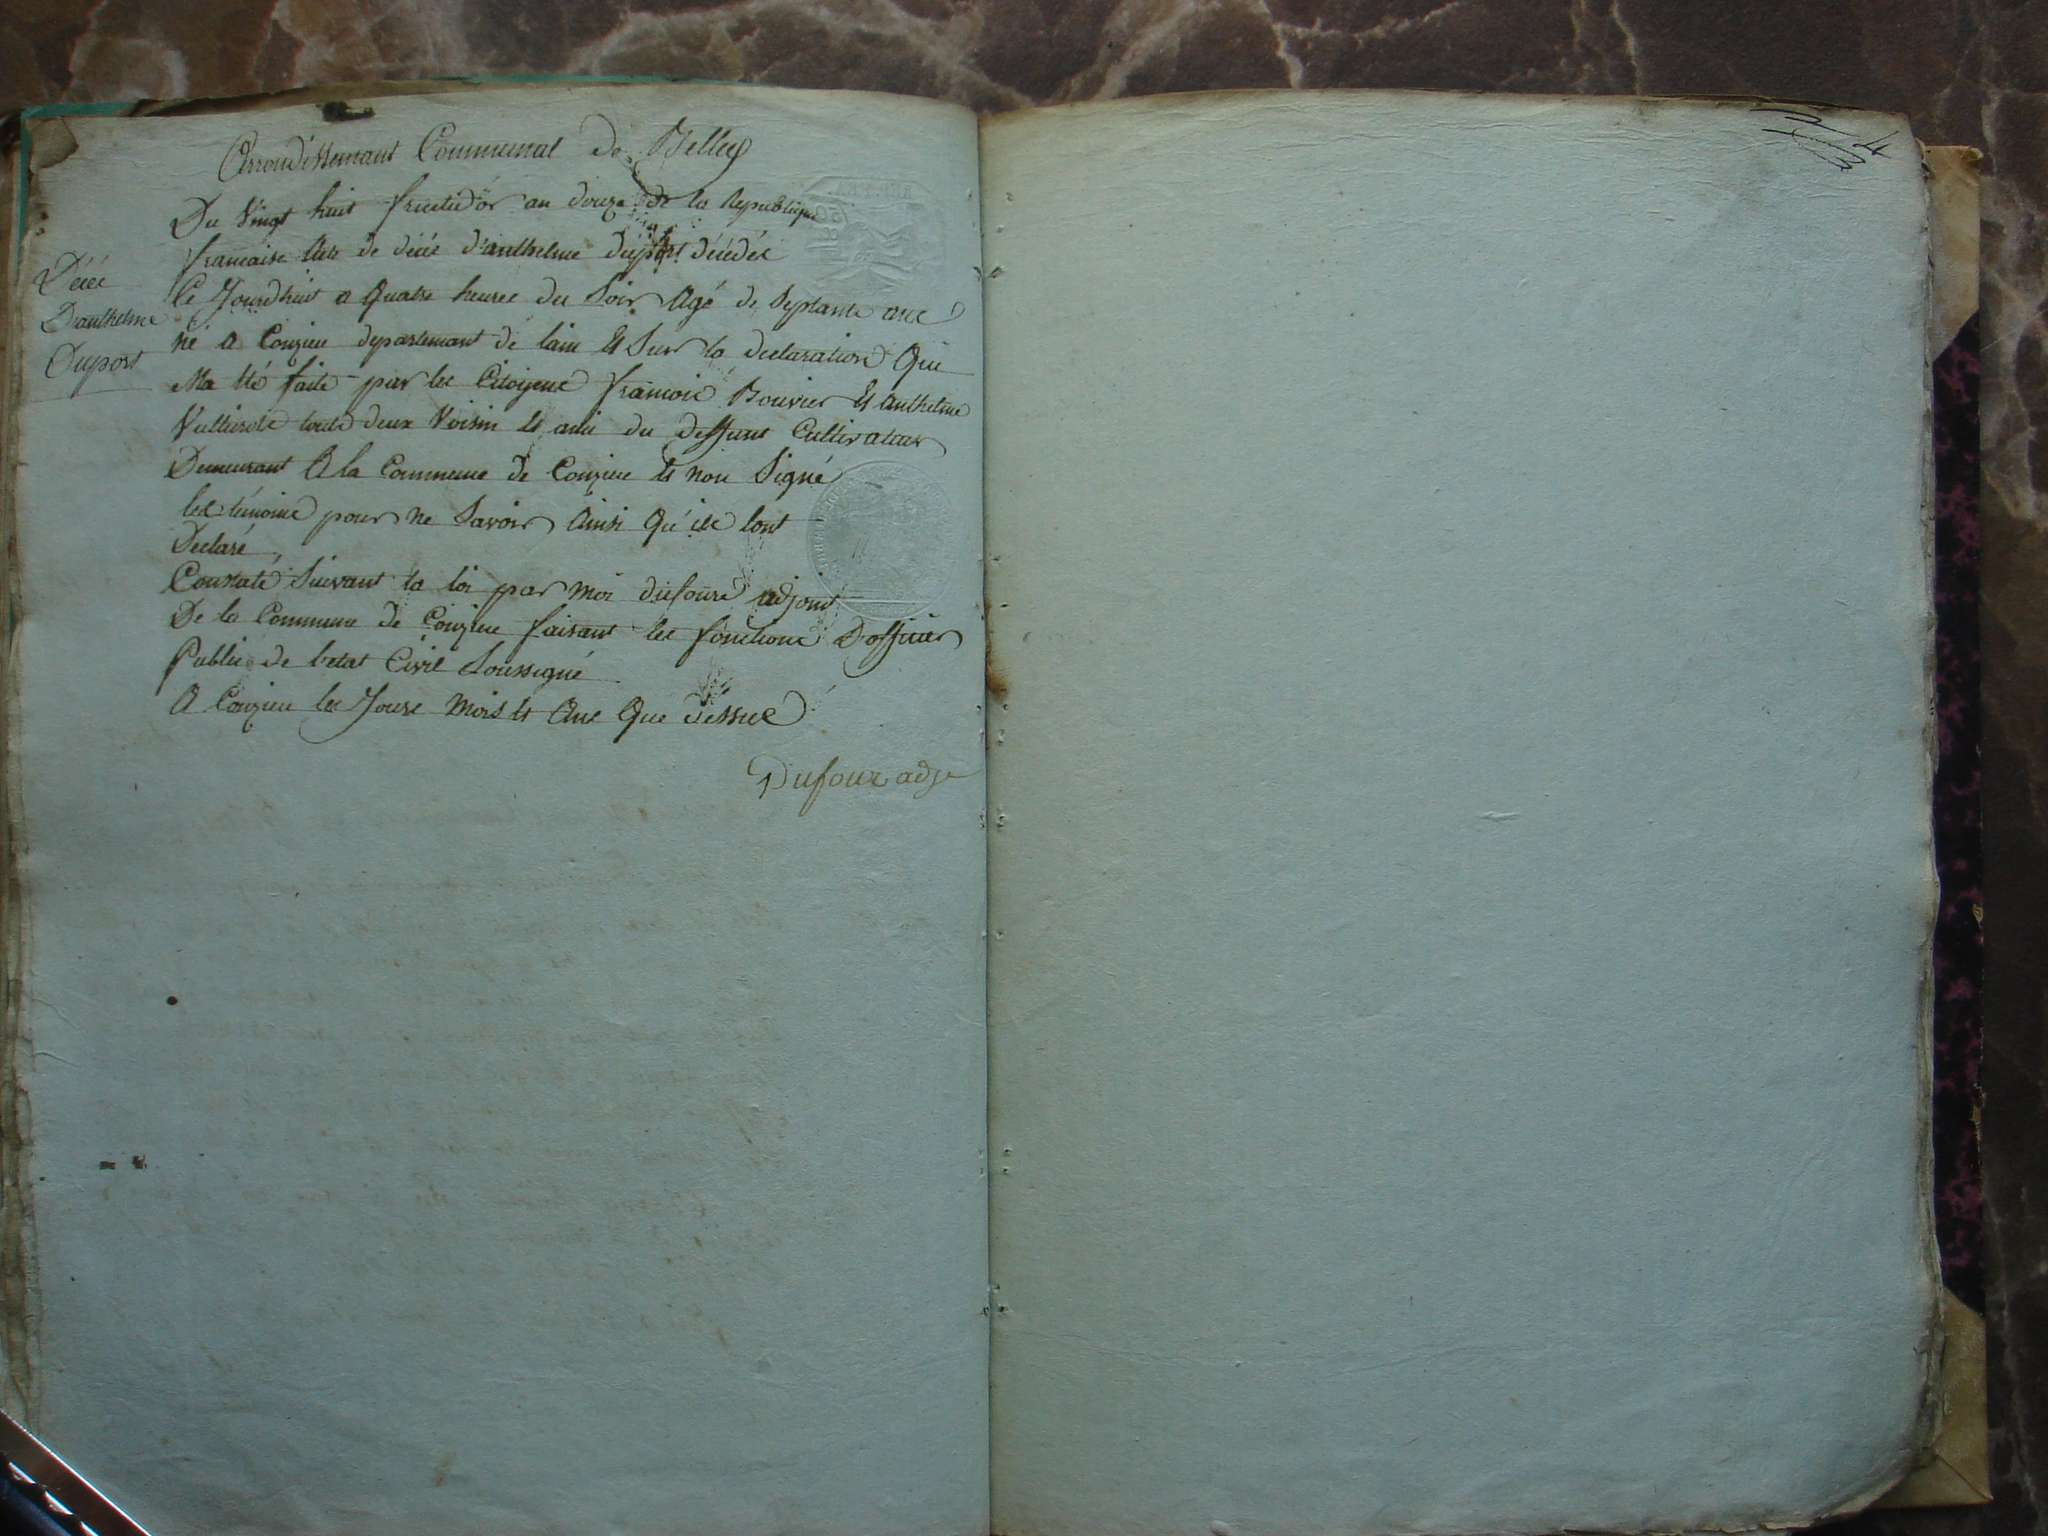 Arrondissement Communal de Belley
Du Vingt huit fructidor an douze de la Republique
francaise Acte de décés d'anthelme duport décédés
le Jourdhuit a Quatre heures du Soir Agé de Septante ans
né a Conzieu departement de lain Et Sur la declaration Qui
Ma été faite par les Citoyens francois Bouvier Et anthelme
touts deux Voisin Et ami du deffunt Cultivateur
Demeurant A la Commune de Conzieu Et non Signé
les témoins pour ne Savoir Ainsi Qu'ils lont
Declaré
Constaté Suivant la loi par moi dufours adjoint
De la Commune de Conzieu faisant les fonctions D'officier
Public de l'etat Civil Soussigné
A Conzieu les Jours Mois Et Ans Que dessus
Dufour adj
Décés
D'anthelme
Duport
4